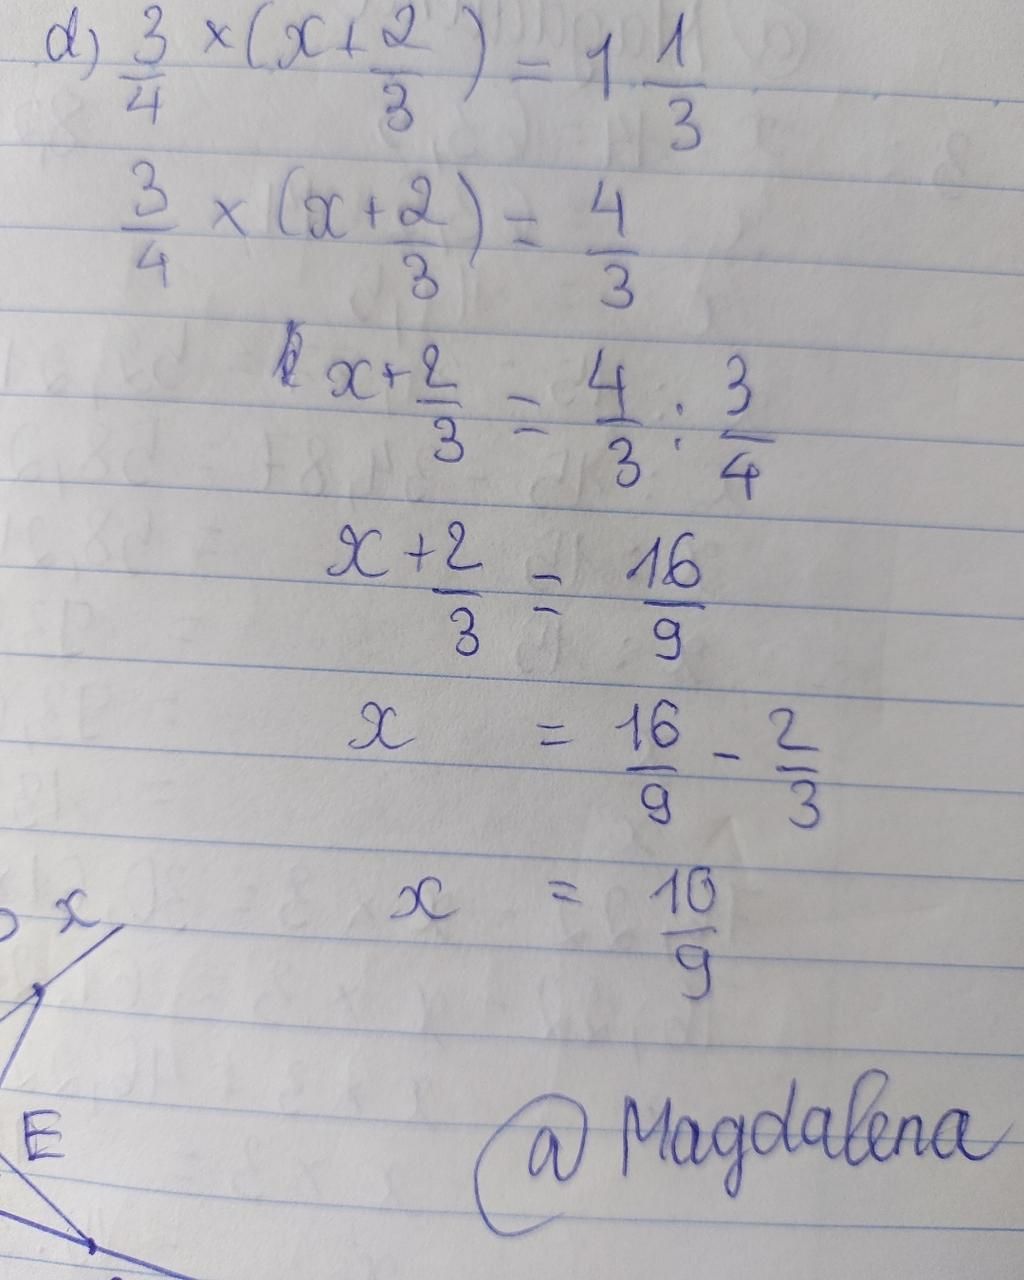 d) 3/4 × (x + 2/3) = 1 1/3
3/4 × (x + 2/3) = 4/3
x + 2/3 = 4/3 : 3/4
x + 2/3 = 16/9
x = 16/9 - 2/3
x = 10/9
x
E
@ Magdalena